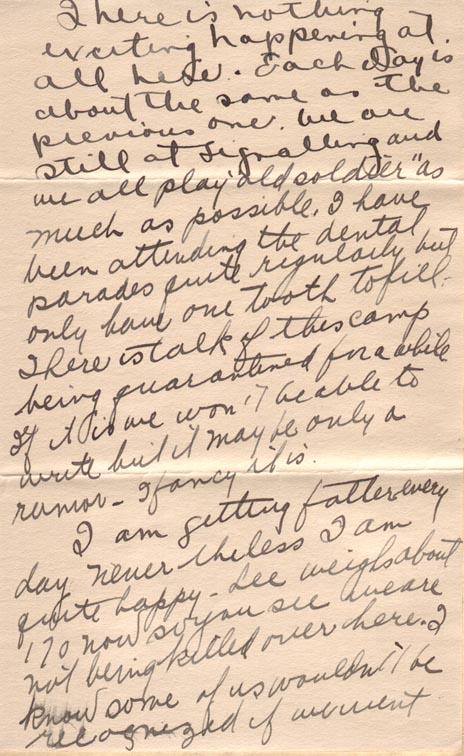 There is nothing
exciting happening at
all here. Each day is
about the same as the
previous one. We are
still at signalling and
we all play "old soldier" as
much as possible. I have
been attending the dental
parades quite regularly but
only have one tooth to fill.
There is talk of this camp
being quarantined for a while
If it is we won't be able to
write but it may be only a
rumor - I fancy it is.
I am getting fatter every
day never theless I am
quite happy - Lee weighs about
170 now so you see we are
not being killed over here. I
know some of us wouldn't be
recognized if we went